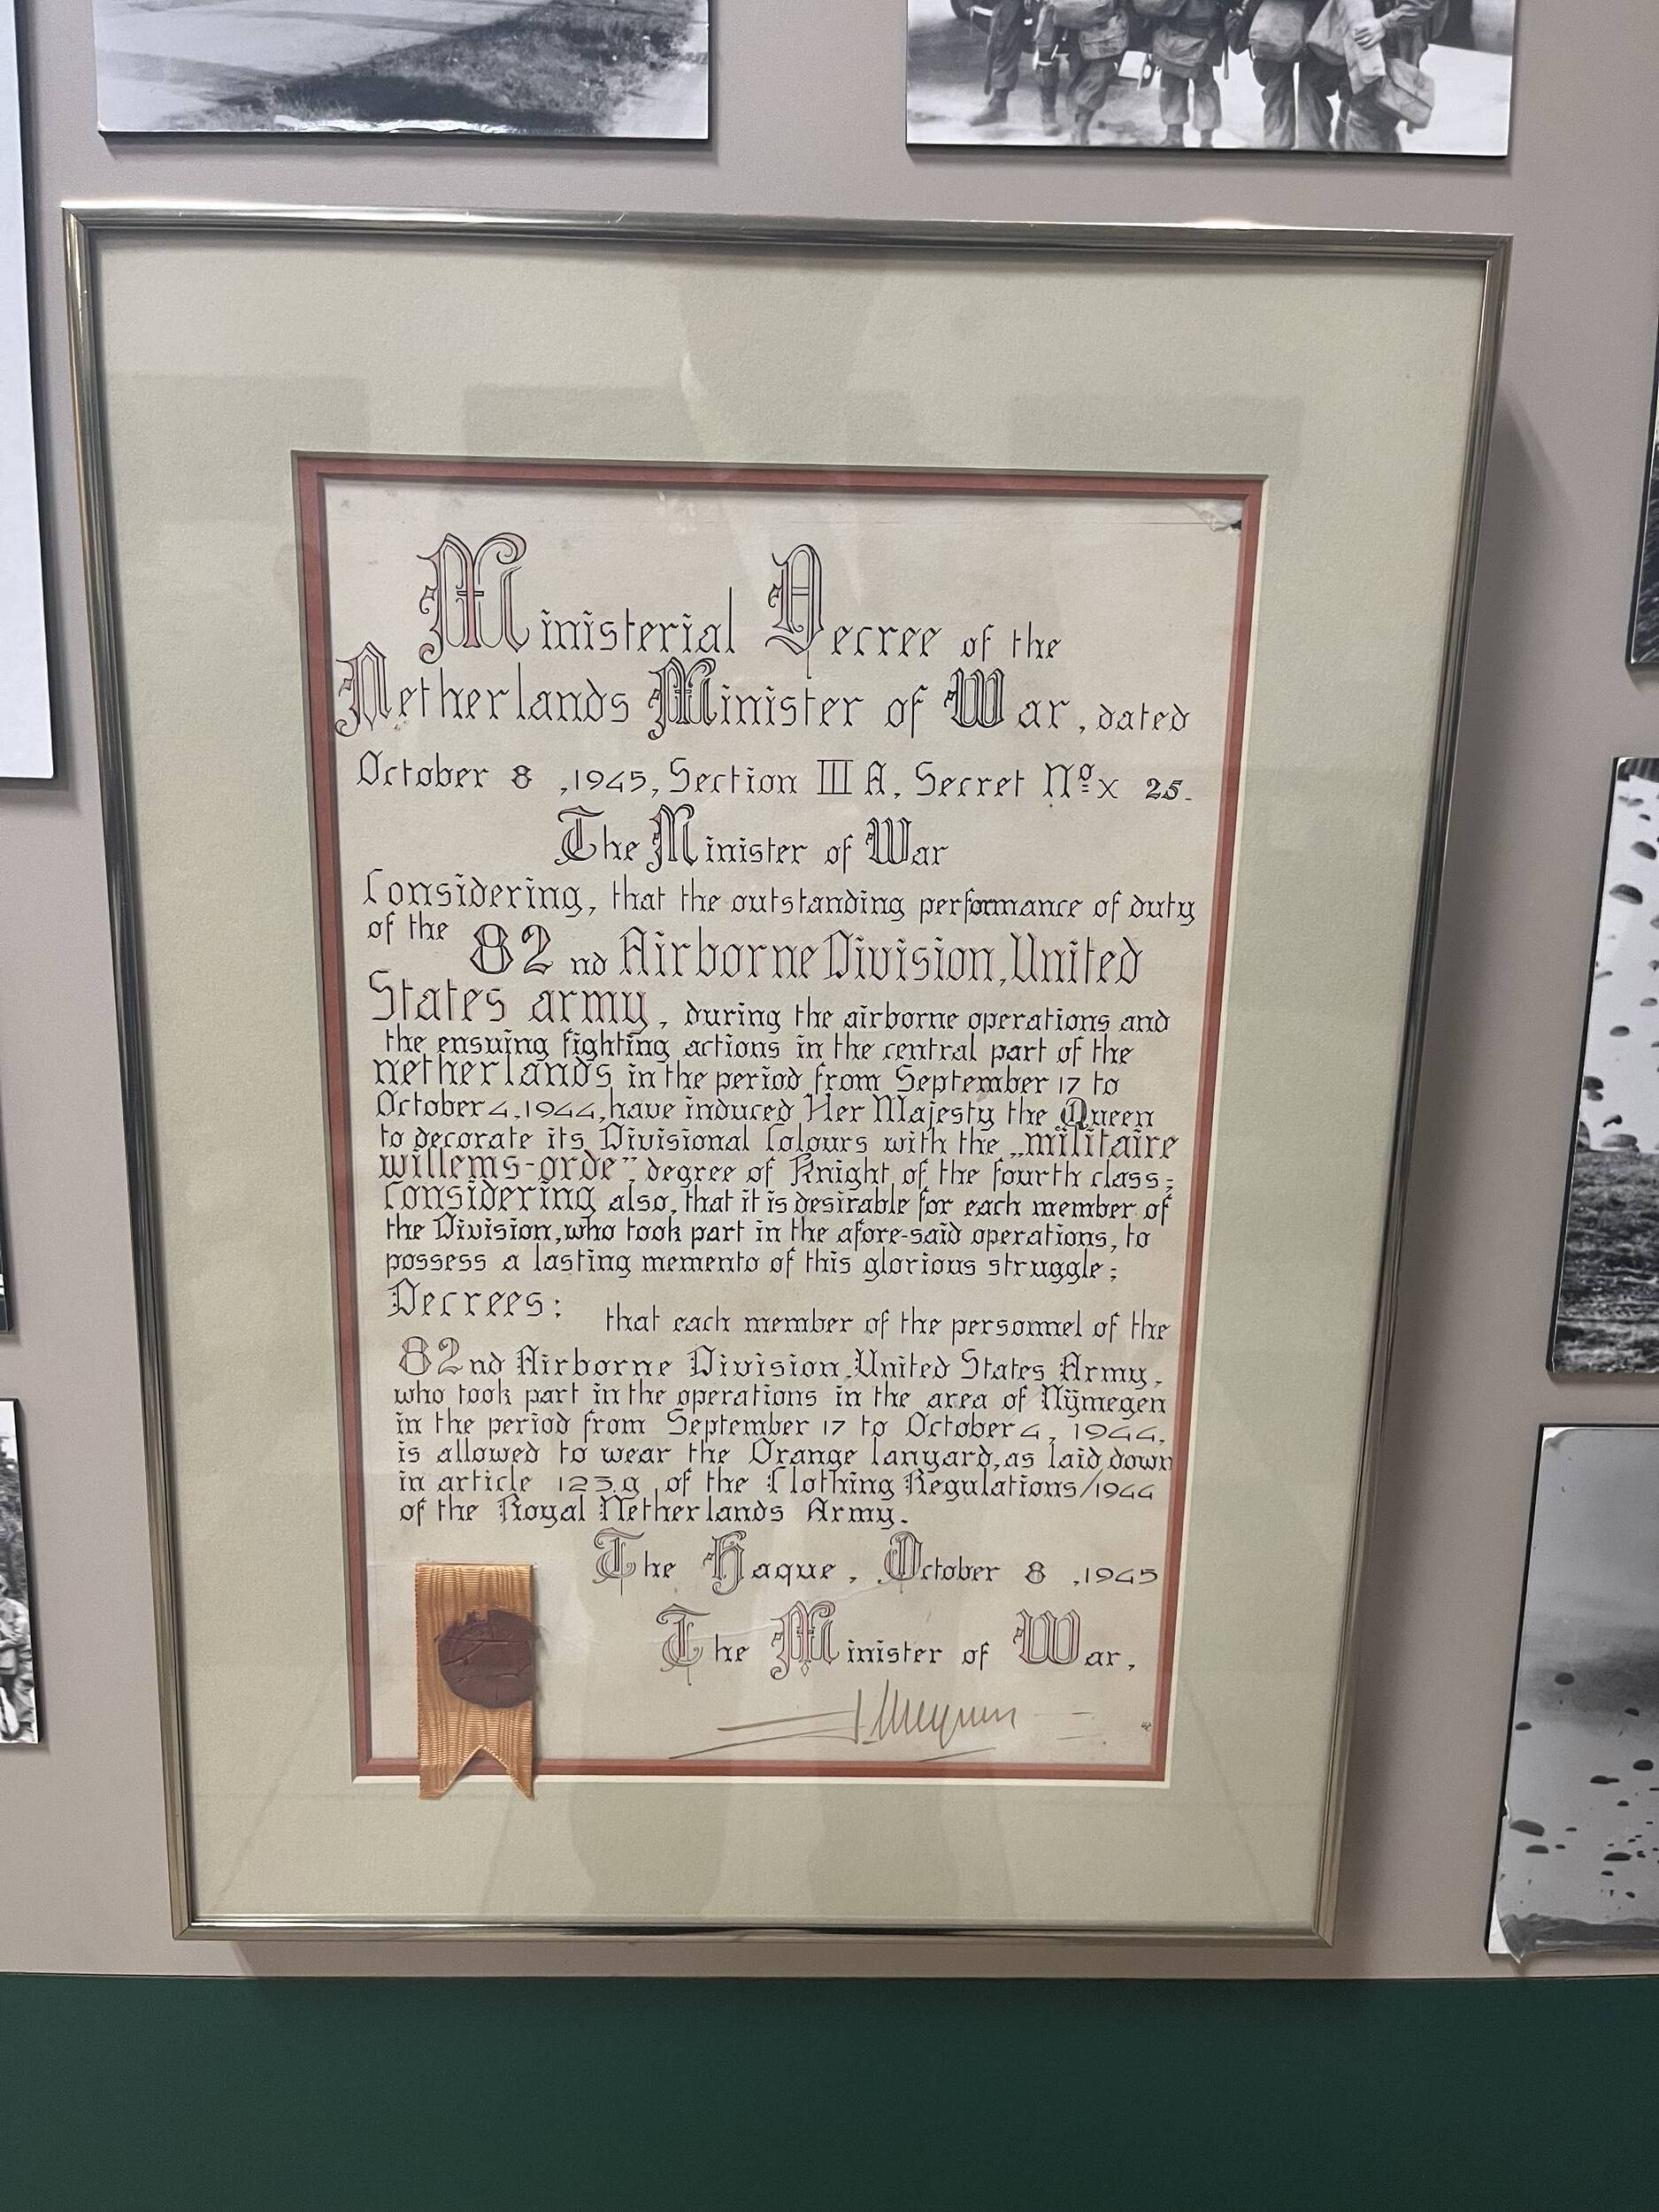 Ministerial Decree of the
Netherlands Minister of War, dated
October 8 ,1945, Section III A, Secret Nº x 25.
The Minister of War
Considering, that the outstanding performance of duty
of the 82nd Airborne Division, United
States army, during the airborne operations and
the ensuing fighting actions in the central part of the
netherlands in the period from September 17 to
October 4, 1944, have induced Her Majesty the Queen
to decorate its Divisional Colours with the „militaire
willems-orde”, degree of Knight of the fourth class;
Considering also, that it is desirable for each member of
the Division, who took part in the afore-said operations, to
possess a lasting memento of this glorious struggle;
Decrees: that each member of the personnel of the
82nd Airborne Division, United States Army,
who took part in the operations in the area of Nijmegen
in the period from September 17 to October 4, 1944,
is allowed to wear the Orange lanyard, as laid down
in article 123g of the Clothing Regulations/1944
of the Royal Netherlands Army.
The Hague, October 8 ,1945
The Minister of War,